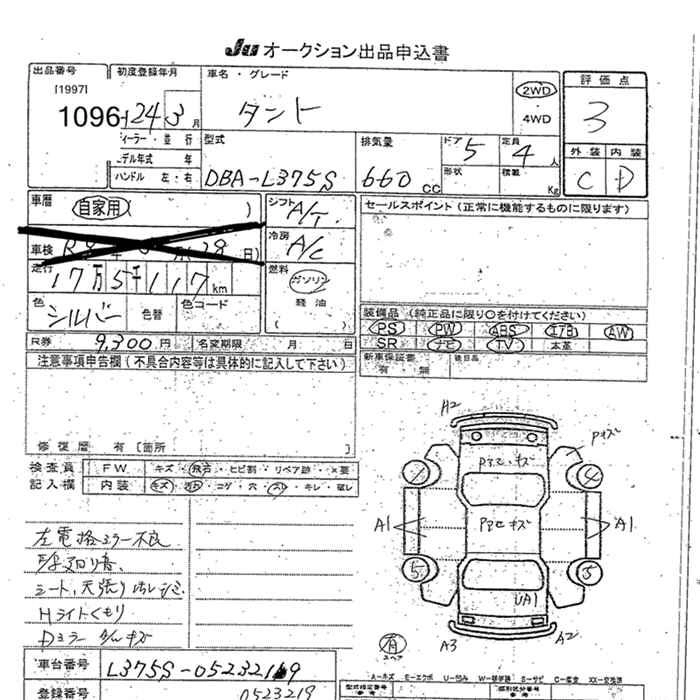 Ju オークション出品申込書
出品番号 初度登録年月 車名・グレード 2WD 評価点
[1997]
1096 24 3月 タント ・ 3
4WD
イーラー・並行 型式 排気量 ドア 定員 外装 内装
デル年式 年 5 4人
ハンドル 左・右 DBA-L375S 660cc 形状 積載 Kg C D
車歴 自家用( ) シフト A/T セールスポイント(正常に機能するものに限ります)
車検 冷房 A/C
走行 17万5千117km 燃料 ガソリン
軽油
色 シルバー 色替 色コード ( ) 装備品(純正品に限り○を付けてください)
PS PW ABS エアB AW
R券 9,300円 名変期限 月 日 SR ナビ TV 本革
注意事項申告欄(不具合内容等は具体的に記入して下さい) 新車保証書 後日品
有・無
修復歴 有[箇所 ]
検査員 FW キズ・飛石・ヒビ割・リペア跡・×要
記入欄 内装 キズ・汚れ・コゲ・穴・スレ・キレ・破レ
A2
Pキズ
4
A1 A1
5 5
UA1
有 A3 A2
スペア
左電格ミラー不良
シート、天張り
Hライトくもり
Dミラー
A-キズ E-エクボ U-凹み W-補修跡 S-サビ C-腐食 XX-交換済
車台番号 L375S-0523219
型式指定番号 類別区分番号
登録番号 0523219